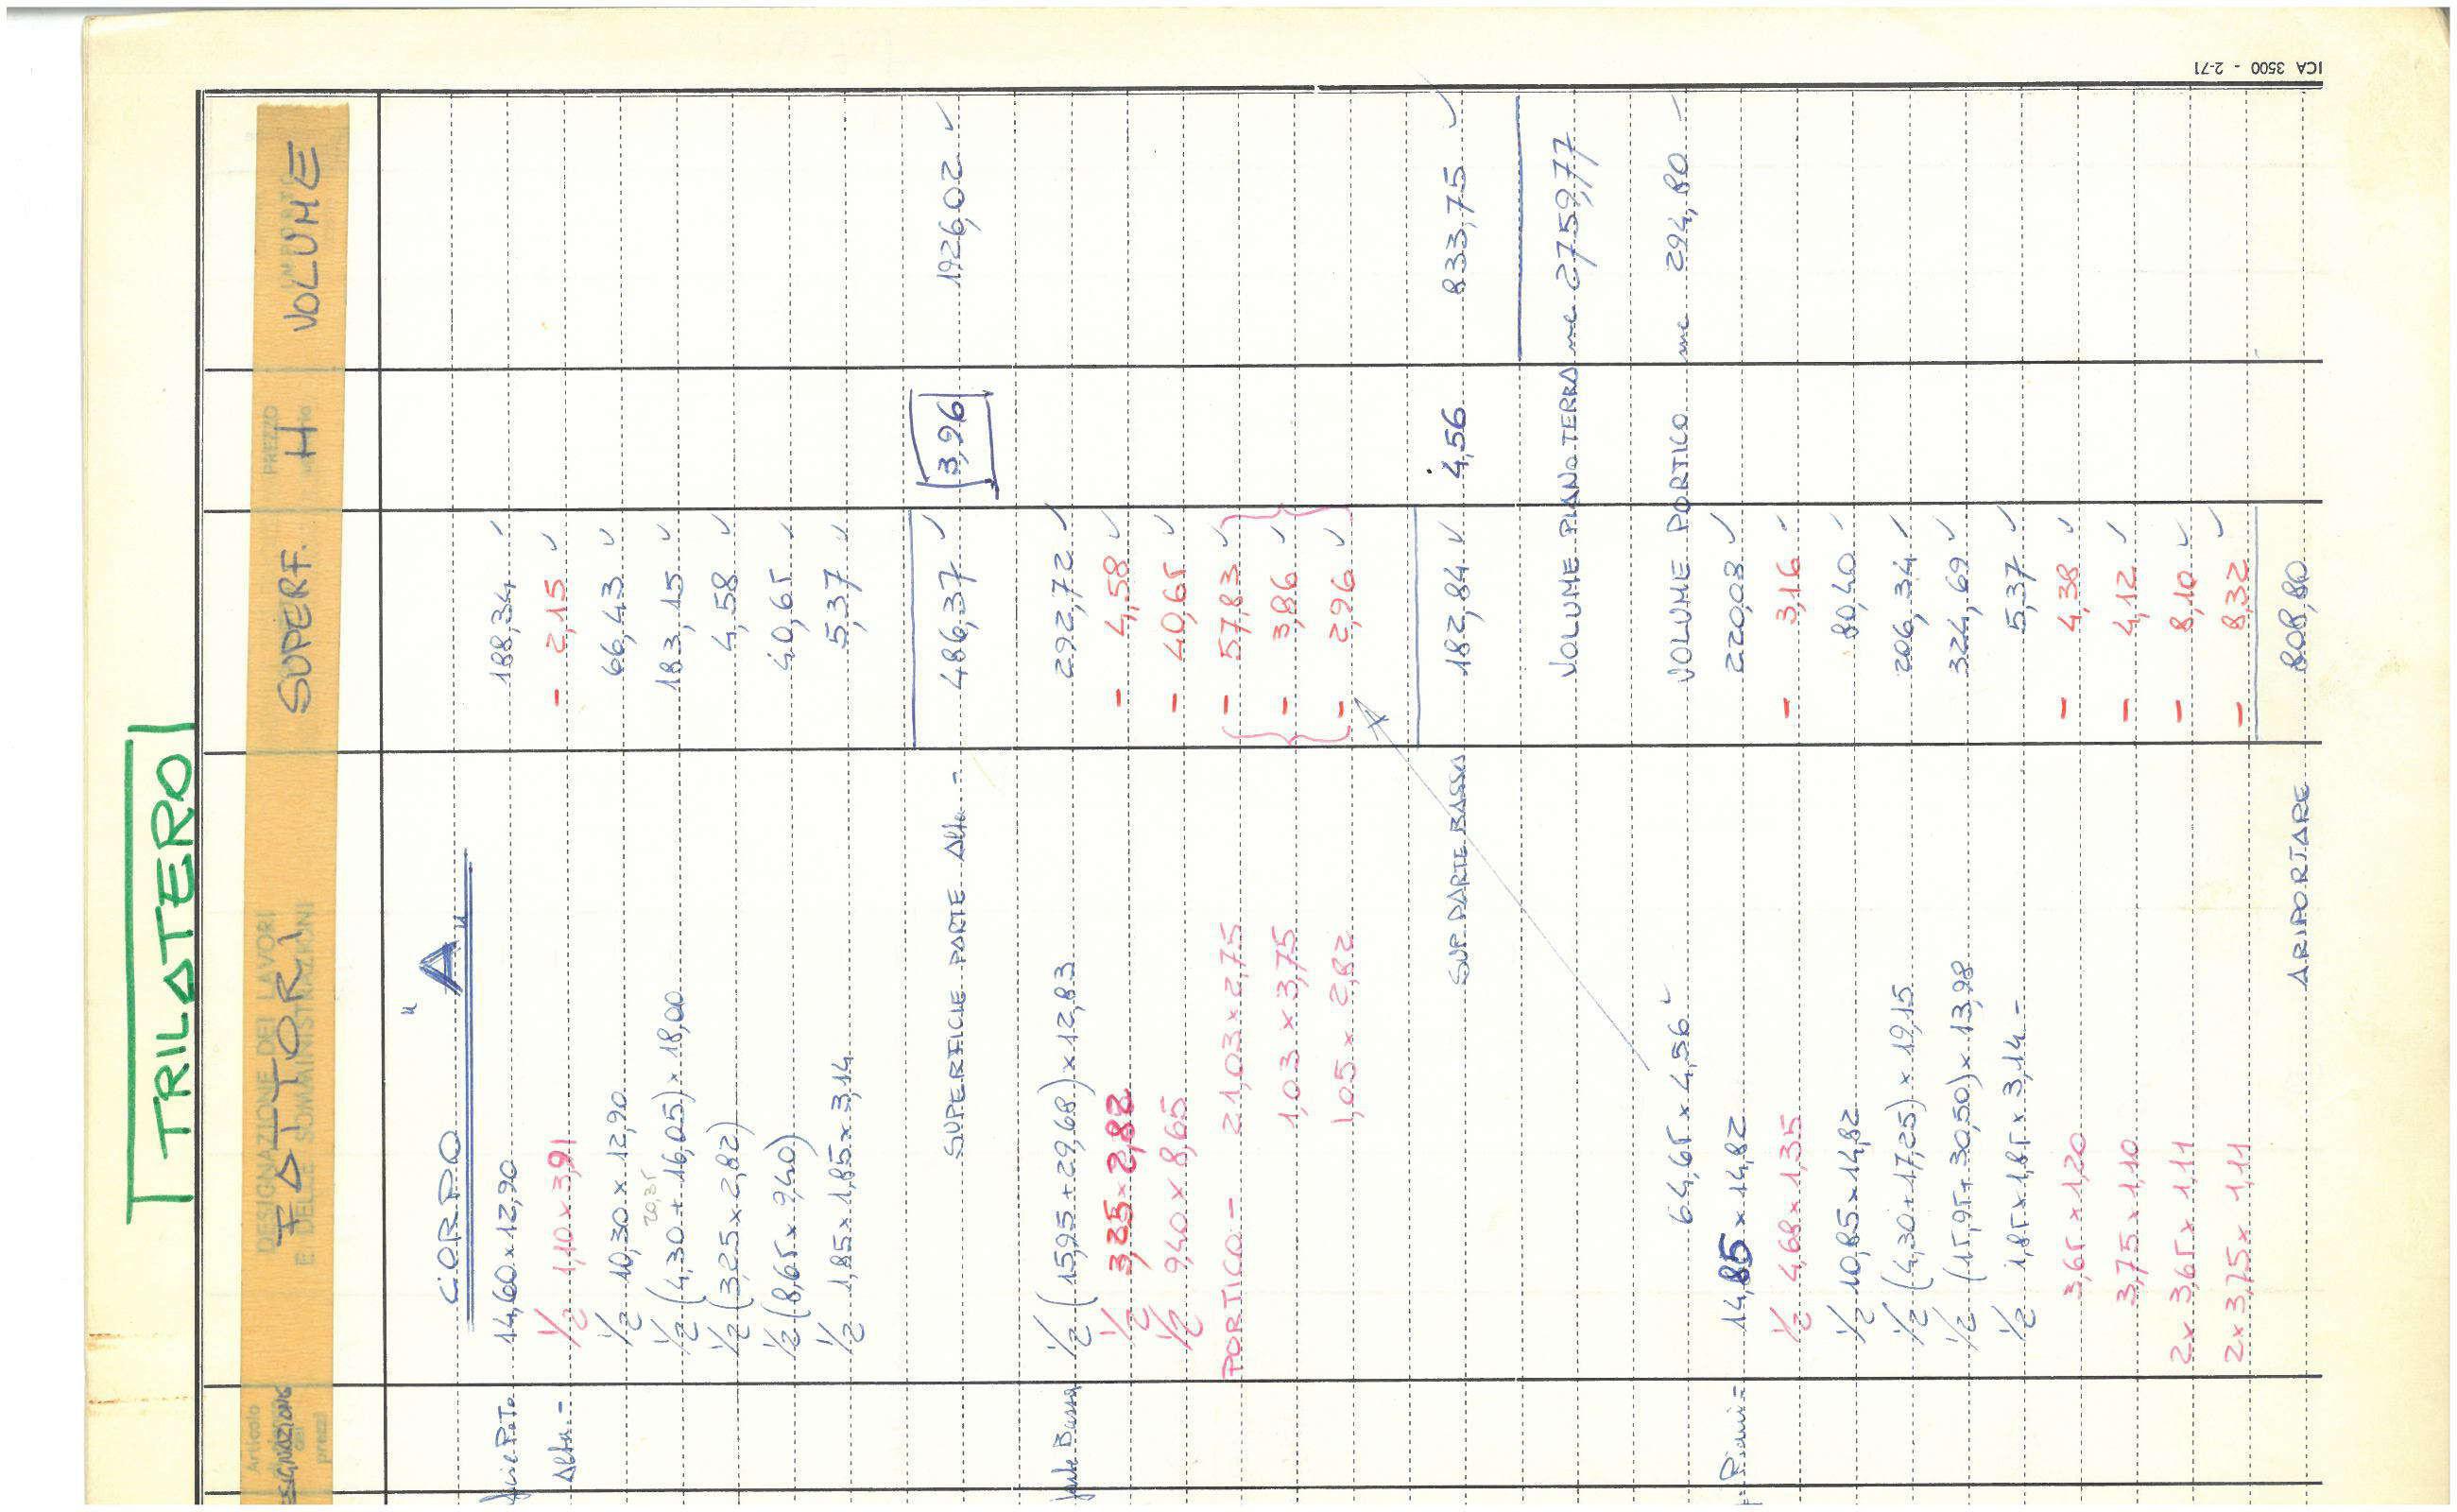 TRILATERO
Articolo
DESIGNAZIONE DEI LAVORI
PREZZO
FATTORI SUPERF. H VOLUME
E DELLE SOMMINISTRAZIONI
prezzi
CORPO "A"
P.To 14,60 x 12,90 188,34 ✓
Alta - 1/2 1,10 x 3,91 - 2,15 ✓
1/2 10,30 x 12,90 66,43 ✓
20,35
1/2 (4,30 + 16,05) x 18,00 183,15 ✓
1/2 (3,25 x 2,82) 4,58 ✓
1/2 (8,65 x 9,40) 40,65 ✓
1/2 1,85 x 1,85 x 3,14 5,37 ✓
SUPERFICIE PARTE Alta - 486,37 ✓ 3,96 1926,02 ✓
parte Bassa 1/2 (15,95 + 29,68) x 12,83 292,72 ✓
1/2 3,25 x 2,82 - 4,58 ✓
1/2 9,40 x 8,65 - 40,65 ✓
PORTICO - 21,03 x 2,75 - 57,83 ✓
1,03 x 3,75 - 3,86 ✓
1,05 x 2,82 - 2,96 ✓
SUP PARTE BASSA 182,84 ✓ 4,56 833,75 ✓
VOLUME PIANO TERRA mc 2759,77
64,65 x 4,56 ✓ VOLUME PORTICO mc 294,80
Piani = 14,85 x 14,82 220,08 ✓
1/2 4,68 x 1,35 - 3,16 ✓
1/2 10,85 x 14,82 80,40 ✓
1/2 (4,30 + 17,25) x 19,15 206,34 ✓
1/2 (15,95 + 30,50) x 13,98 324,69 ✓
1/2 1,85 x 1,85 x 3,14 - 5,37 ✓
3,65 x 1,20 - 4,38 ✓
3,75 x 1,10 - 4,12 ✓
2 x 3,65 x 1,11 - 8,10 ✓
2 x 3,75 x 1,11 - 8,32 ✓
A RIPORTARE 808,80
ICA 3500 - 2-71